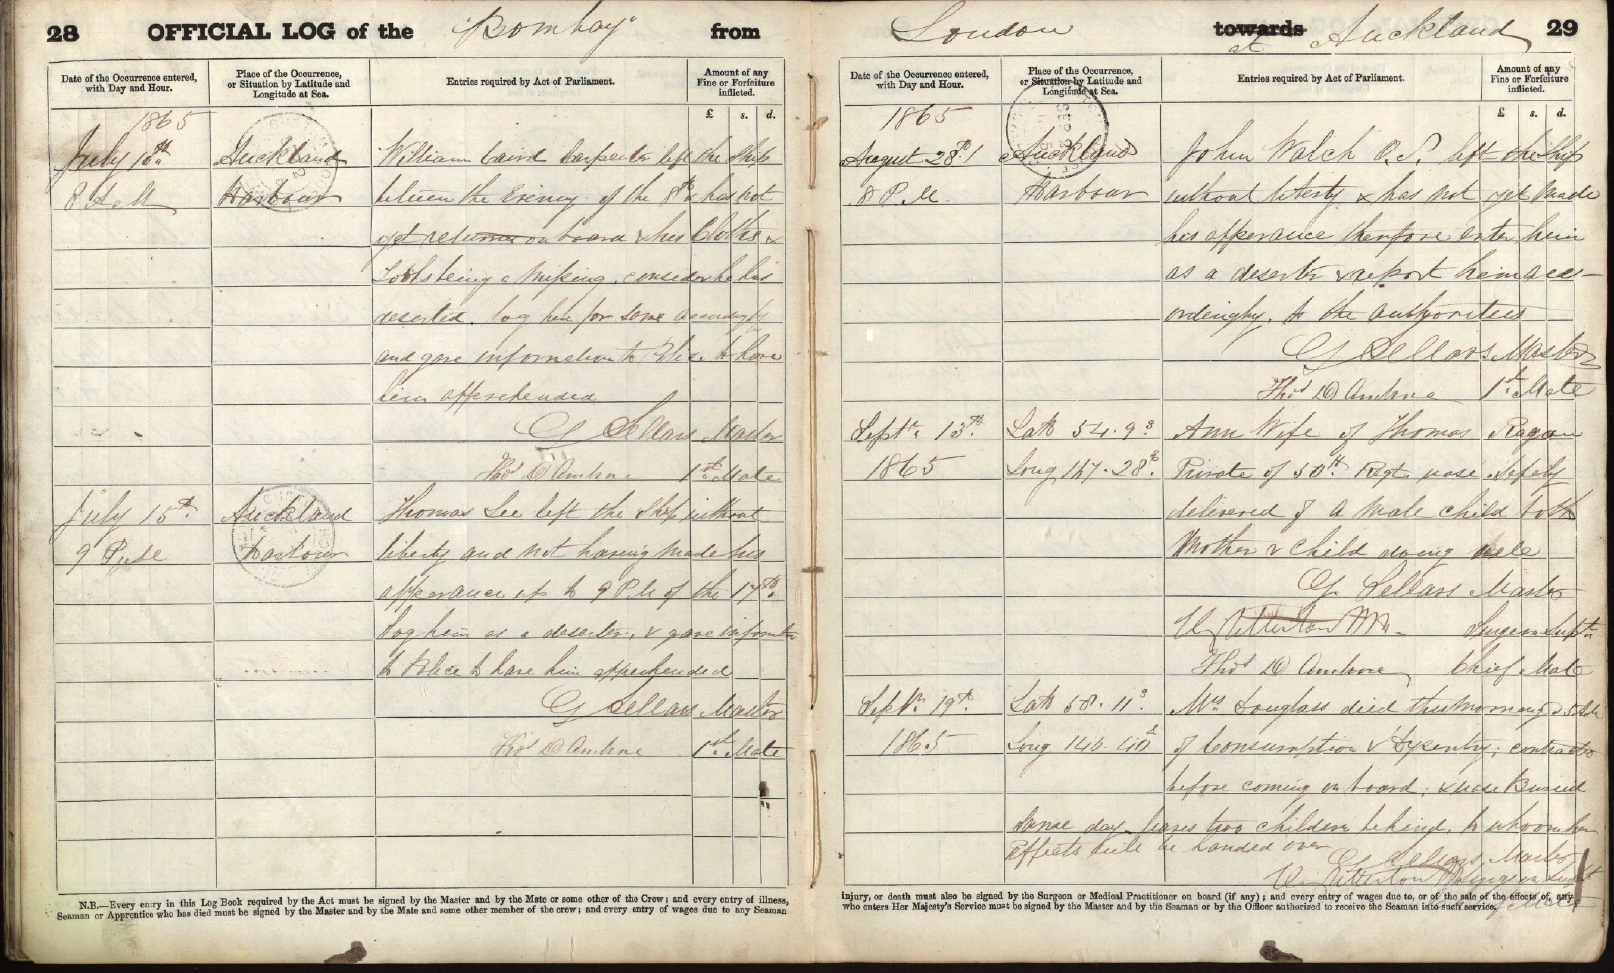 28 OFFICIAL LOG of the "Bombay" from
Date of the Occurrence entered, with Day and Hour.
Place of the Occurrence, or Situation by Latitude and Longitude at Sea.
Entries required by Act of Parliament.
Amount of any Fine or Forfeiture inflicted.
£ s. d.
1865
July 10th Auckland William Caird Carpenter left the Ship
8 A M Harbour between the Evening of the 8th & has not
yet returned on board & his Cloths &
Tools being missing, consider he has
deserted. log him for same accordingly
and gave information to Police to have
him apprehended
G Sellars Master
Thos D Ambrose 1st Mate
July 15th Auckland Thomas Lee left the Ship without
9 P.M Harbour liberty and not having made his
apperance up to 9 P.M of the 17th
log him as a deserter, & gave information
to Police to have him apprehended
G Sellars Master
Thos D Ambrose 1st Mate
N.B.—Every entry in this Log Book required by the Act must be signed by the Master and by the Mate or some other of the Crew; and every entry of illness,
Seaman or Apprentice who has died must be signed by the Master and by the Mate and some other member of the crew; and every entry of wages due to any Seaman
London towards at Auckland 29
Date of the Occurrence entered, with Day and Hour.
Place of the Occurrence, or Situation by Latitude and Longitude at Sea.
Entries required by Act of Parliament.
Amount of any Fine or Forfeiture inflicted.
£ s. d.
1865
August 28th Auckland John Walch O.S. left the Ship
8 P.M. Harbour without liberty & has not yet made
his apperance therfore enter him
as a deserter & report him acc-
ordingly, to the authorities
G Sellars Master
Thos D Ambrose 1st Mate
Septr 13th Lat 54.9 S Ann Wife of Thomas Ragan
1865 Long 167.28 Private of 50th Regt was safely
delivered of a male child both
Mother & Child doing well
G. Sellars Master
Surgeon Supt
Thos D Ambrose Chief Mate
Septr 19th Lat 58.11 S Mrs Douglass died this morning
1865 Long 146. of Consumption & Dysentry, contracted
before coming on board, & was Buried
same day. leaves two children behind, to whoom her
effects will be handed over
G Sellars Master
Surgeon Supt
injury, or death must also be signed by the Surgeon or Medical Practitioner on board (if any); and every entry of wages due to, or of the sale of the effects of, any
who enters Her Majesty's Service must be signed by the Master and by the Seaman or by the Officer authorized to receive the Seaman into such service.